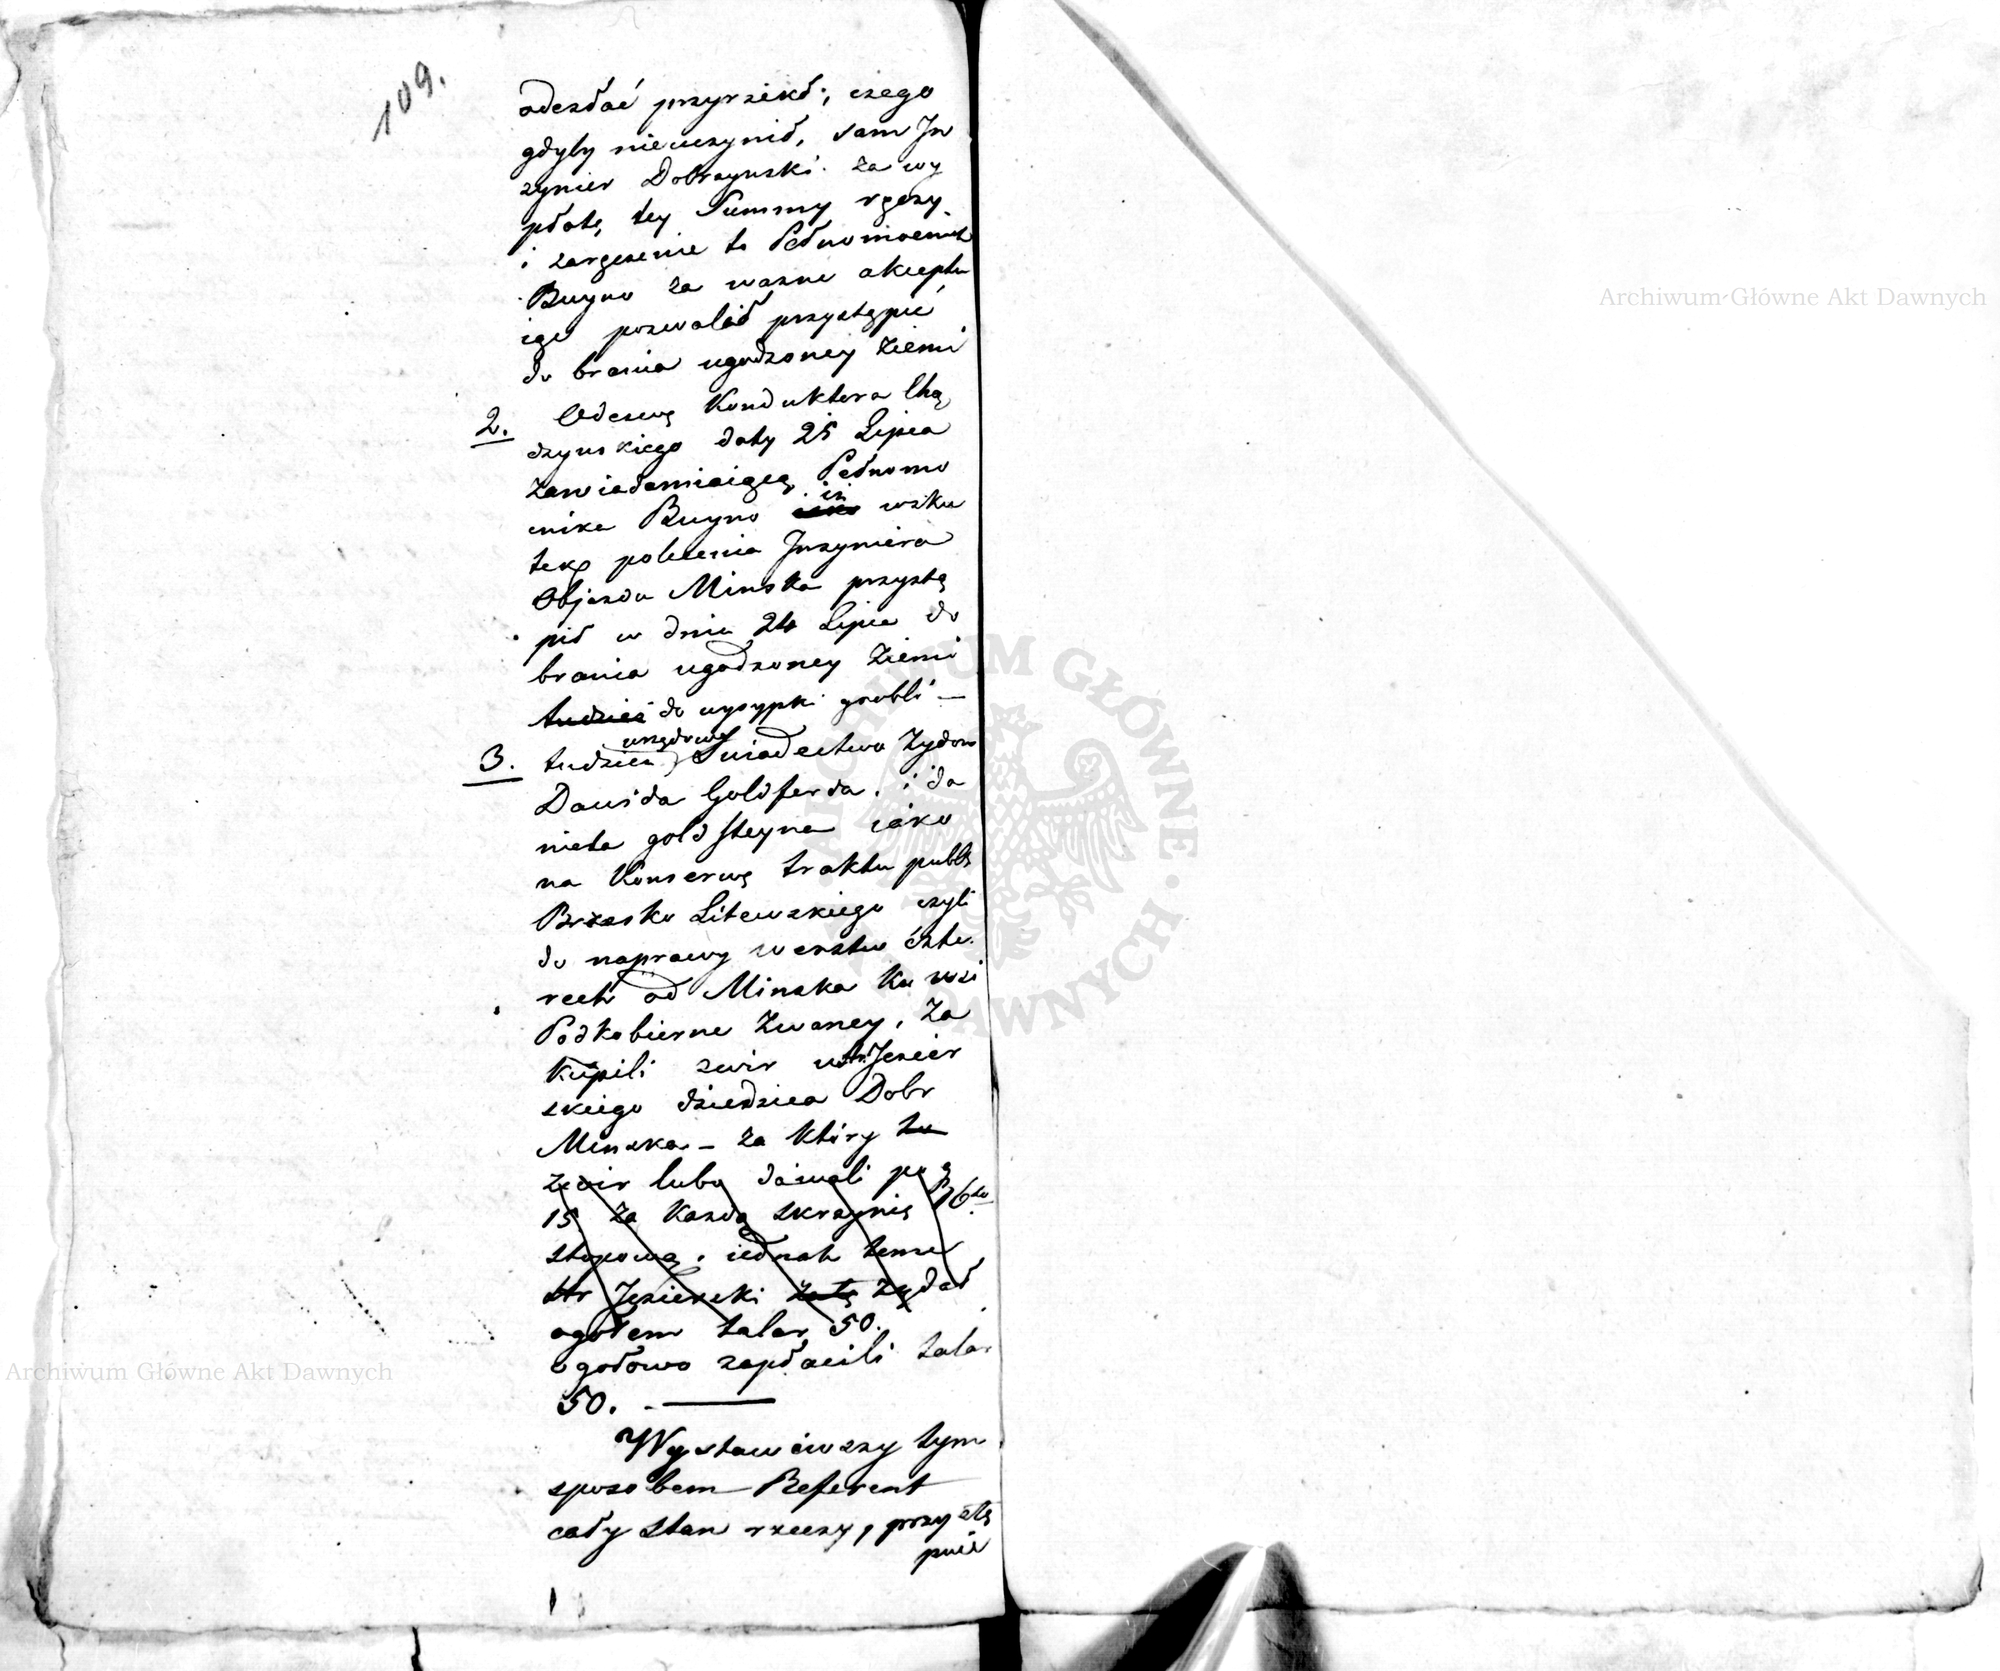 109.
odesłać przyrzekł, czego
gdyby nieuczynił, sam In
zynier Dobrzynski za wy
płatę tey Summy ręczy
i zaręczenie to Pełnomocnik
Buyno za wazne akceptu
iąc pozwolił przystąpić
do brania ugodzoney ziemi
2. Odezwę Konduktera Chą
dzynskiego daty 25 Lipca
zawiadamiaiącą Pełnomo
cnika Buyno iz wsku
tek polecenia Inzyniera
Objazdu Minska przystą
pił w dniu 24 Lipca do
brania ugodzoney ziemi
tudziez do wysypki grobli —
3. tudziez urzędowe Swiadectwo Zydow
Dawida Goldferda, i Da
niela goldszteyna iako
na Konserwę traktu publ
Brzesko Litewskiego czyli
do naprawy werstw czte
rech od Minska ku wsi
Podkobierne zwaney, za
kupili zwir u Jezier
skiego dziedzica Dobr
Minska — za który to
zwir lubo dawali po
15 za kazdą skrzynię 36
stopową, iednak tenze
Jezierski żądał
ogołem talar 50.
ogołowo zapłacili talar
50. —
Wystawiwszy tym
sposobem Referent
cały stan rzeczy, przystę
puie
Archiwum Główne Akt Dawnych
Archiwum Główne Akt Dawnych
ARCHIWUM GŁÓWNE AKT DAWNYCH